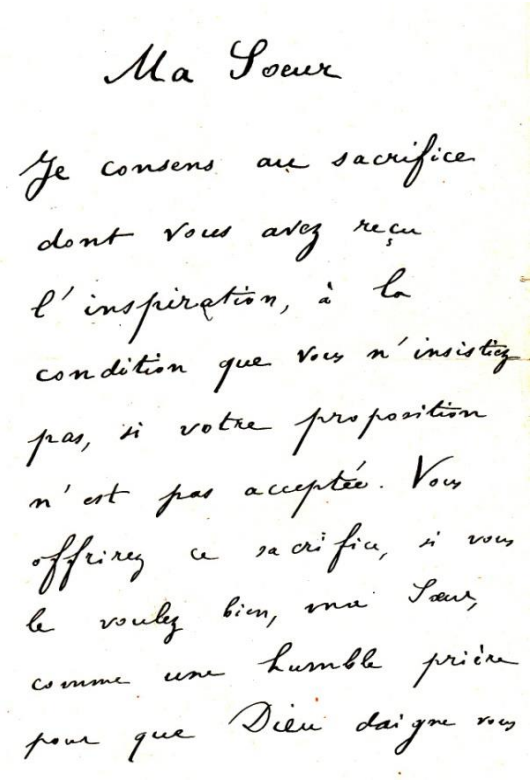 Ma Soeur
Je consens au sacrifice
dont vous avez reçu
l'inspiration, à la
condition que vous n'insistiez
pas, si votre proposition
n'est pas acceptée. Vous
offrirez ce sacrifice, si vous
le voulez bien, ma Sœur,
comme une humble prière
pour que Dieu daigne vous